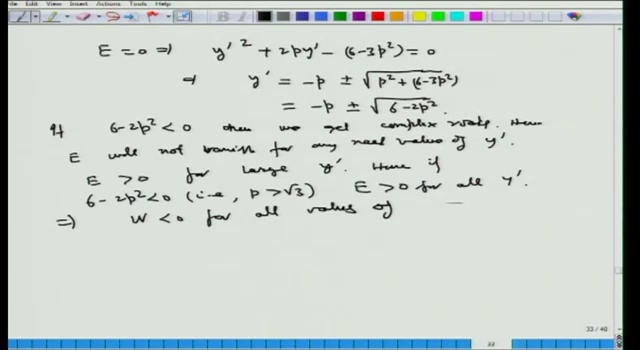 Edit View Insert Actions Tools Help
E = 0 ⇒ y'² + 2py' - (6-3p²) = 0
⇒ y' = -p ± √(p² + (6-3p²))
= -p ± √(6-2p²)
If 6-2p² < 0 then we get complex roots. Hence
E will not vanish for any real value of y'.
E > 0 for large y'. Hence if
6-2p² < 0 (i.e, p > √3) E > 0 for all y'.
⇒ W < 0 for all value of
33 / 40
33